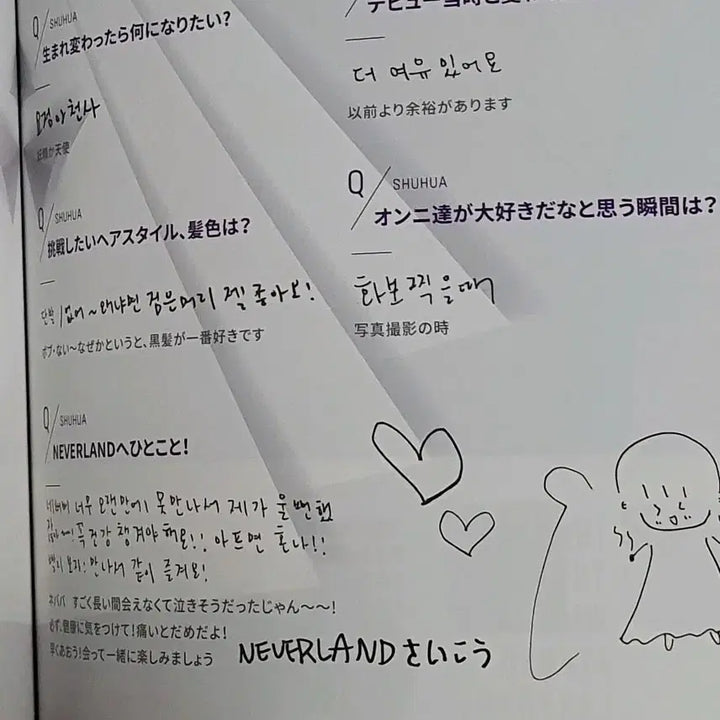 Q SHUHUA
生まれ変わったら何になりたい?
요정아 천사
妖精か天使
Q SHUHUA
挑戦したいヘアスタイル、髪色は?
단발 / 없어~ 왜냐면 검은머리 젤 좋아요!
ボブ・ない~なぜかというと、黒髪が一番好きです
Q SHUHUA
NEVERLANDへひとこと!
네버버 너무 오랜만에 못만나서 제가 울뻔했
잖아~! 꼭 건강 챙겨야 해요!! 아프면 혼나!!
빨리 보자! 만나서 같이 즐겨요!
ネバパ すごく長い間会えなくて泣きそうだったじゃん~~!
必ず、健康に気をつけて!痛いとだめだよ!
早くあおう!会って一緒に楽しみましょう
NEVERLAND さいこう
더 여유 있어요
以前より余裕があります
Q SHUHUA
オンニ達が大好きだなと思う瞬間は?
화보 찍을 때
写真撮影の時